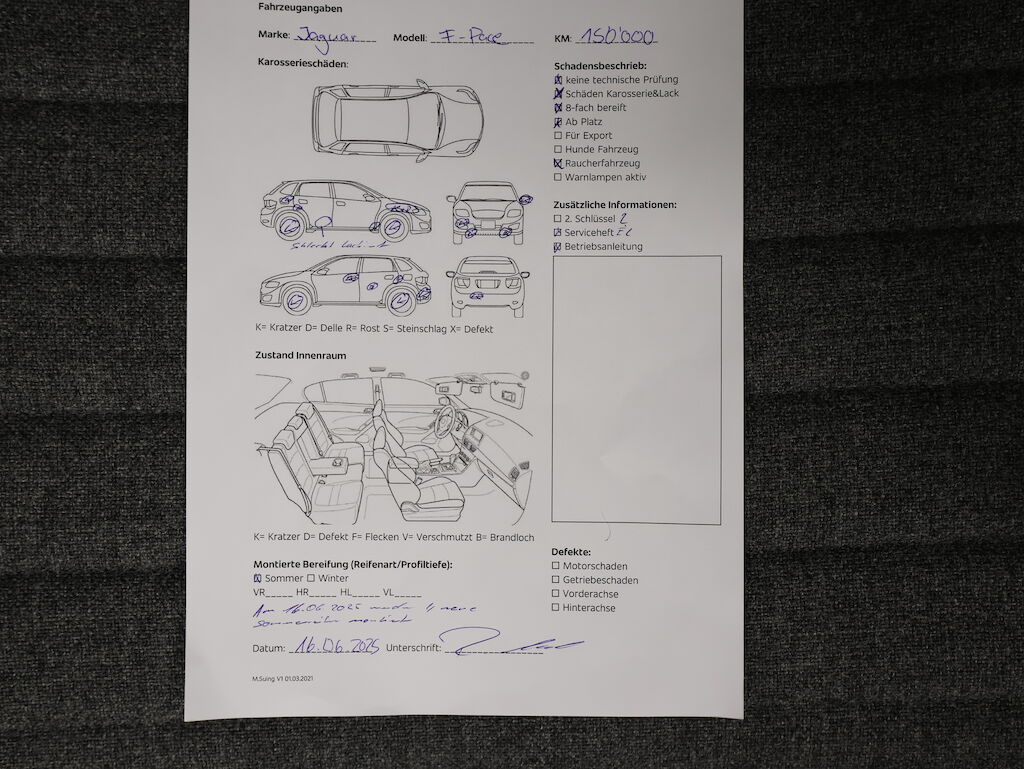 Fahrzeugangaben
Marke: Jaguar Modell: F-Pace KM: 150'000
Karosserieschäden:
schlecht lackiert
K= Kratzer D= Delle R= Rost S= Steinschlag X= Defekt
Zustand Innenraum
K= Kratzer D= Defekt F= Flecken V= Verschmutzt B= Brandloch
Montierte Bereifung (Reifenart/Profiltiefe):
☒ Sommer ☐ Winter
VR_____ HR_____ HL_____ VL_____
Am 16.06 2025 wurden 4 neue
Sommerreifen montiert
Datum: 16.06.2025 Unterschrift:
M.Suing V1 01.03.2021
Schadensbeschrieb:
☒ keine technische Prüfung
☒ Schäden Karosserie&Lack
☒ 8-fach bereift
☒ Ab Platz
☐ Für Export
☐ Hunde Fahrzeug
☒ Raucherfahrzeug
☐ Warnlampen aktiv
Zusätzliche Informationen:
☐ 2. Schlüssel 2
☒ Serviceheft
☒ Betriebsanleitung
Defekte:
☐ Motorschaden
☐ Getriebeschaden
☐ Vorderachse
☐ Hinterachse